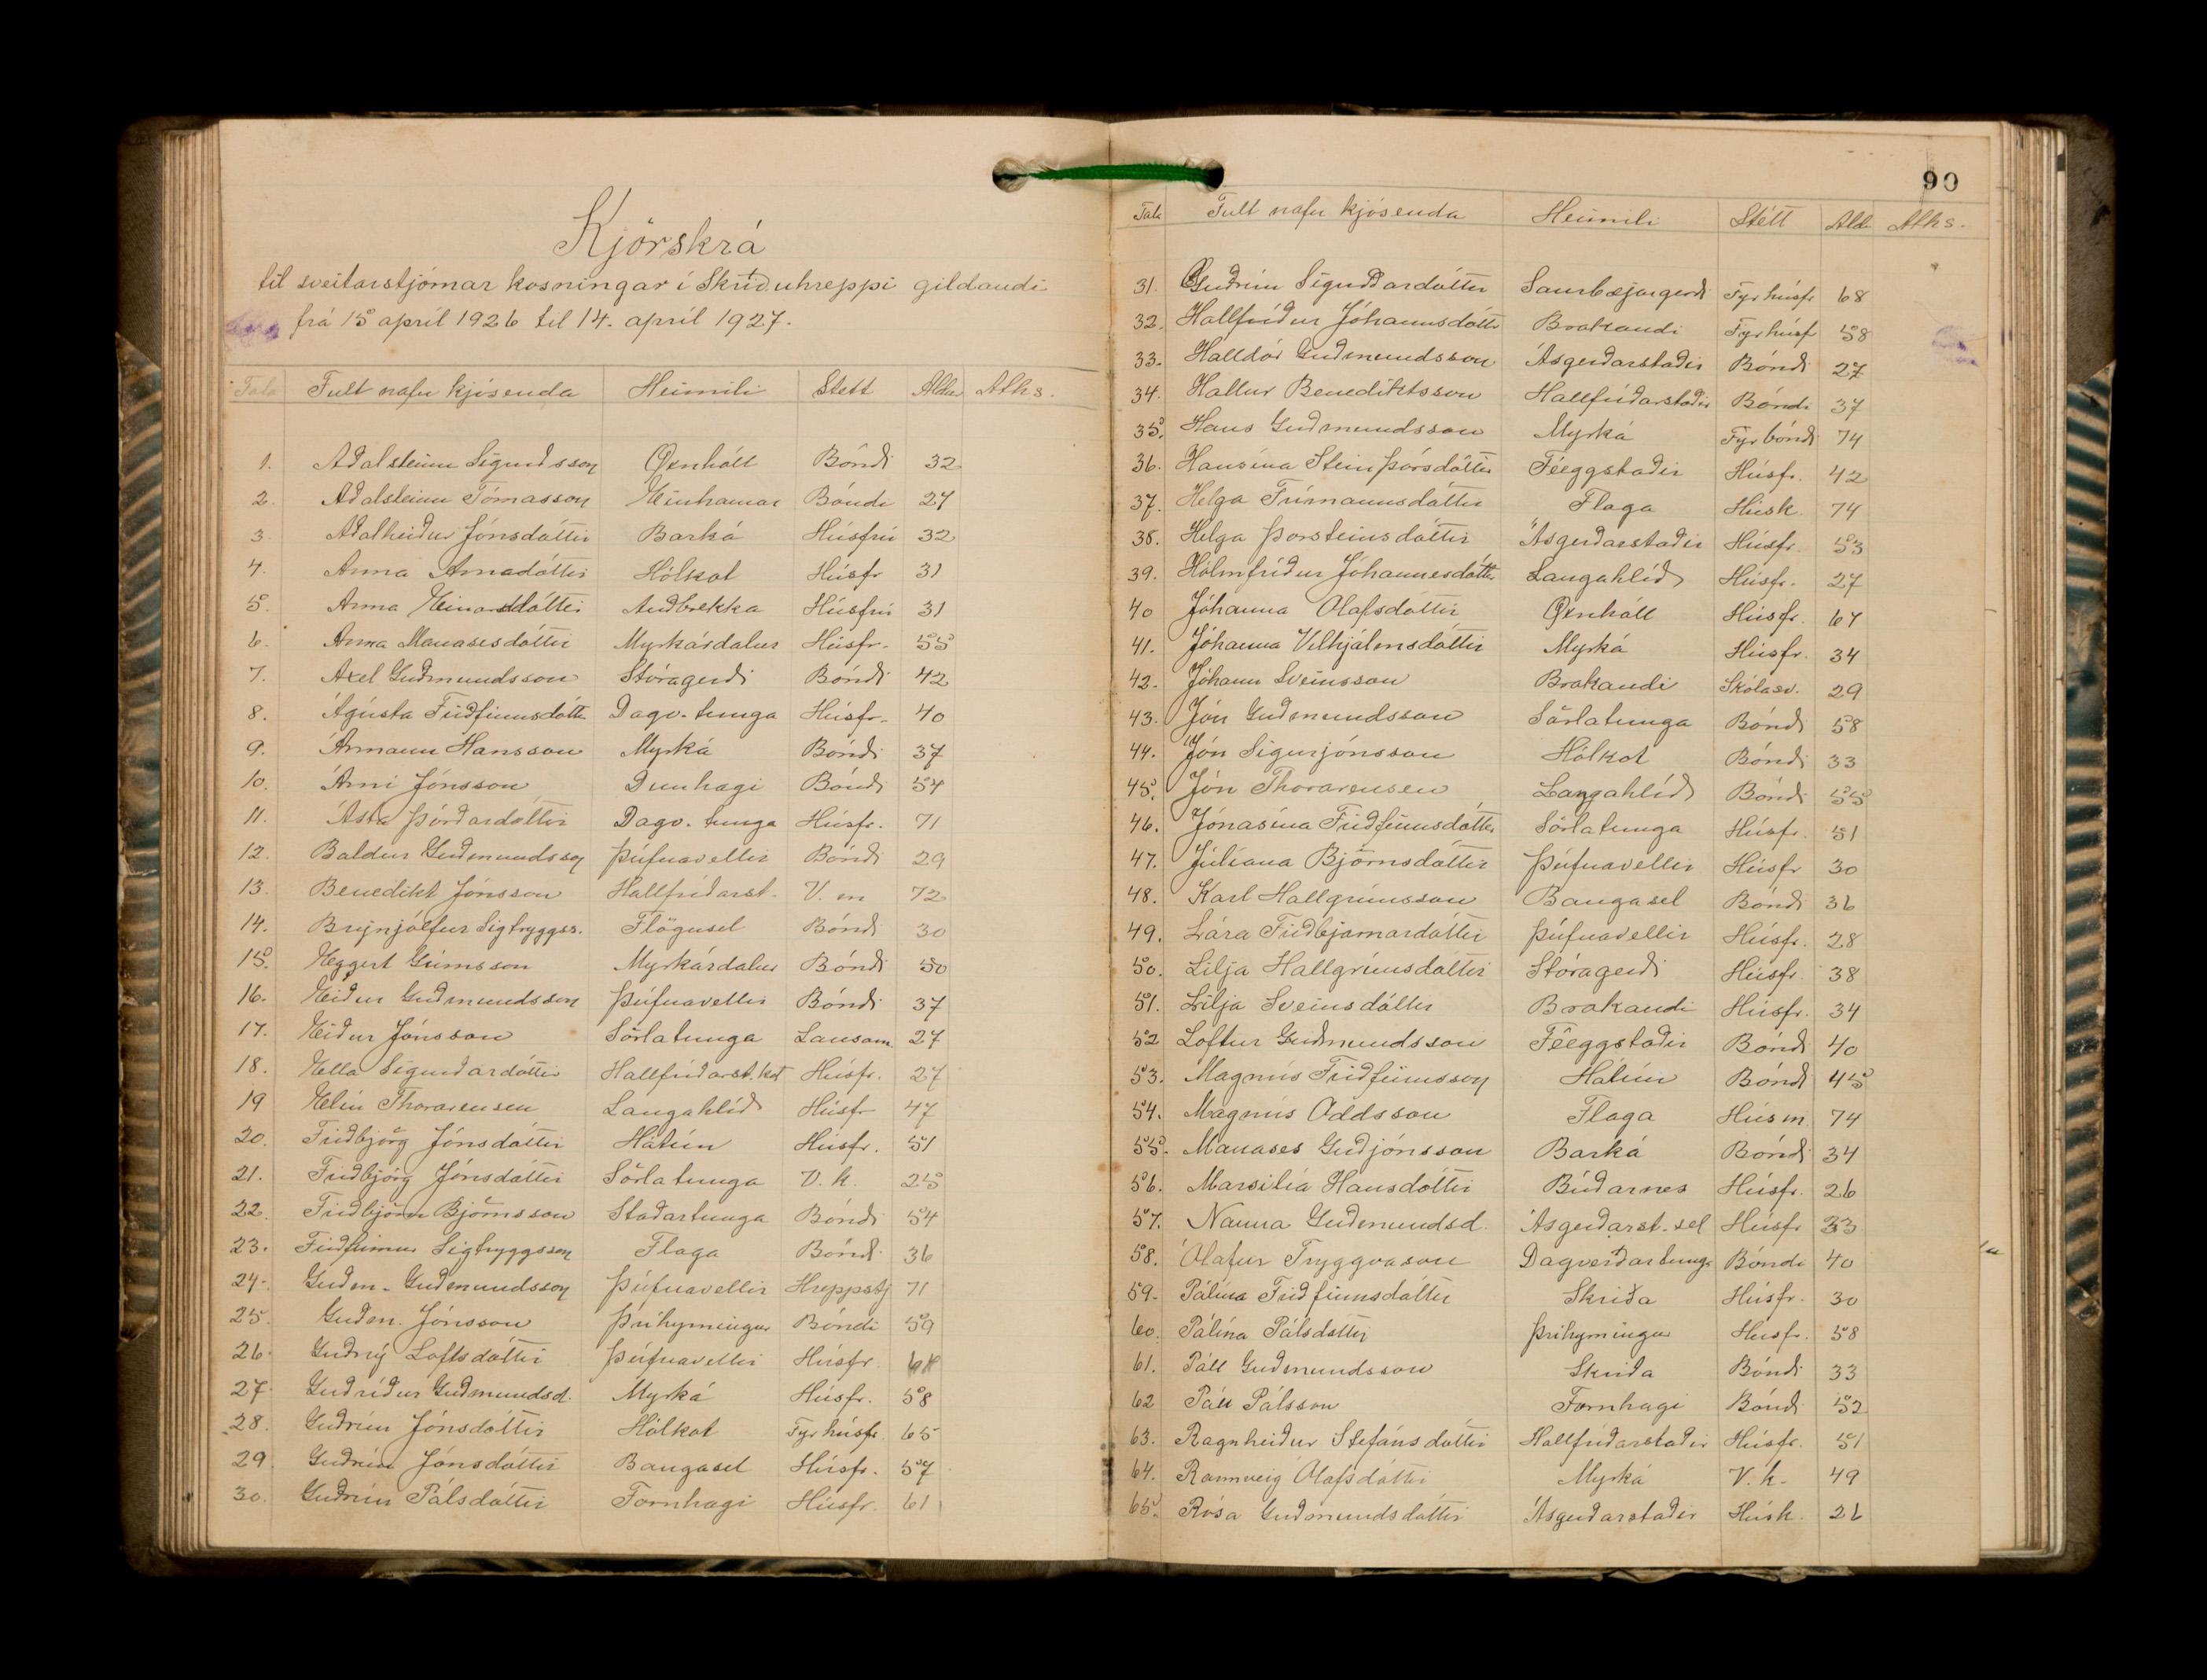 Kjörskrá
til sveitarstjórnar kosningar í Skriðuhreppi gildandi
frá 15 apríl 1926 til 14. apríl 1927.
Tala Fult nafn kjósenda Heimili Stett Aldur Aths.
1. Aðalsteinn Sigurðsson Öxnhóll Bóndi 32
2. Aðalsteinn Tómasson Einhamar Bóndi 27
3. Aðalheiður Jónsdóttir Barká Húsfrú 32
4. Anna Arnadóttir Hólkot Húsfr 31
5. Anna Einarsdóttir Auðbrekka Húsfrú 31
6. Anna Manasesdóttir Myrkárdalur Húsfr. 55
7. Axel Guðmundsson Stóragerði Bóndi 42
8. Ágústa Friðfinnsdóttir Dagv. tunga Húsfr. 40
9. Ármann Hansson Myrká Bóndi 37
10. Árni Jónsson Dunhagi Bóndi 54
11. Ásta Þórðardóttir Dagv. tunga Húsfr. 71
12. Baldur Guðmundsson Þúfnavellir Bóndi 29
13. Benedikt Jónsson Hallfríðarst. V. m 72
14. Brynjólfur Sigtryggss. Flögusel Bóndi 30
15. Eggert Grímsson Myrkárdalur Bóndi 50
16. Eiður Guðmundsson Þúfnavellir Bóndi 37
17. Eiður Jónsson Sörlatunga Lausam. 27
18. Ella Sigurðardóttir Hallfríðarst. kot Húsfr. 27
19 Elín Thorarensen Langahlíð Húsfr 47
20. Friðbjörg Jónsdóttir Hátún Húsfr. 51
21. Friðbjörg Jónsdóttir Sörlatunga V. k. 25
22. Friðbjörn Björnsson Staðartunga Bóndi 54
23. Friðfinnur Sigtryggsson Flaga Bóndi 36
24. Guðm. Guðmundsson Þúfnavellir Hreppstj 71
25. Guðm. Jónsson Þríhyrningur Bóndi 59
26. Guðný Loftsdóttir Þúfnavellir Húsfr
27. Guðríður Guðmundsd. Myrká Húsfr. 58
28. Guðrún Jónsdóttir Hólkot Fyr húsfr. 65
29. Guðrún Jónsdóttir Baugasel Húsfr. 57
30. Guðrún Pálsdóttir Fornhagi Húsfr. 61
90
Tala Fult nafn kjósenda Heimili Stétt Ald. Aths.
31. Guðrún Sigurðardóttir Saurbæjargerði Fyr húsfr 68
32. Hallfríður Jóhannsdóttir Brakandi Fyr húsf 58
33. Halldór Guðmundsson Ásgerðarstaðir Bóndi 27
34. Hallur Benediktsson Hallfríðarstaðir Bóndi 37
35. Hans Guðmundsson Myrká Fyr bóndi 74
36. Hansína Steinþórsdóttir Féeggstaðir Húsfr. 42
37. Helga Frímannsdóttir Flaga Húsk. 74
38. Helga Þorsteinsdóttir Ásgerðarstaðir Húsfr. 53
39. Hólmfríður Jóhannesdóttir Langahlíð Húsfr. 27
40 Jóhanna Olafsdóttir Öxnhóll Húsfr. 67
41. Jóhanna Vilhjálmsdóttir Myrká Húsfr. 34
42. Jóhann Sveinsson Brakandi Skólasv. 29
43. Jón Guðmundsson Sörlatunga Bóndi 58
44. Jón Sigurjónsson Hólkot Bóndi 33
45. Jón Thorarensen Langahlíð Bóndi 55
46. Jónasína Friðfinnsdóttir Sörlatunga Húsfr. 51
47. Júlíana Björnsdóttir Þúfnavellir Húsfr 30
48. Karl Hallgrímsson Baugasel Bóndi 36
49. Lára Friðbjarnardóttir Þúfnavellir Húsfr. 28
50. Lilja Hallgrímsdóttir Stóragerði Húsfr. 38
51. Lilja Sveinsdóttir Brakandi Húsfr. 34
52 Loftur Guðmundsson Féeggstaðir Bóndi 40
53. Magnús Friðfinnsson Hátún Bóndi 45
54. Magnús Oddsson Flaga Húsm. 74
55. Manases Guðjónsson Barká Bóndi 34
56. Marsilía Hansdóttir Búðarnes Húsfr. 26
57. Nanna Guðmundsd. Ásgerðarst. sel Húsfr 33
58. Ólafur Tryggvason Dagverðartunga Bóndi 40
59. Pálína Friðfinnsdóttir Skriða Húsfr. 30
60. Pálína Pálsdóttir Þríhyrningur Húsfr. 58
61. Páll Guðmundsson Skriða Bóndi 33
62 Páll Pálsson Fornhagi Bóndi 52
63. Ragnheiður Stefánsdóttir Hallfríðarstaðir Húsfr. 51
64. Rannveig Ólafsdóttir Myrká V. k. 49
65. Rósa Guðmundsdóttir Ásgerðarstaðir Húsk. 26